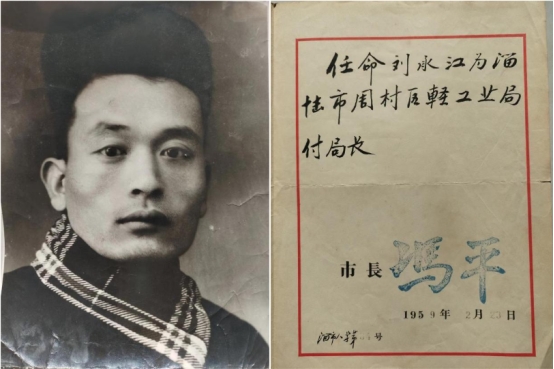 任命刘永江为淄
博市周村区軽工业局
付局长
市長 馮平
1959年2月23日
号